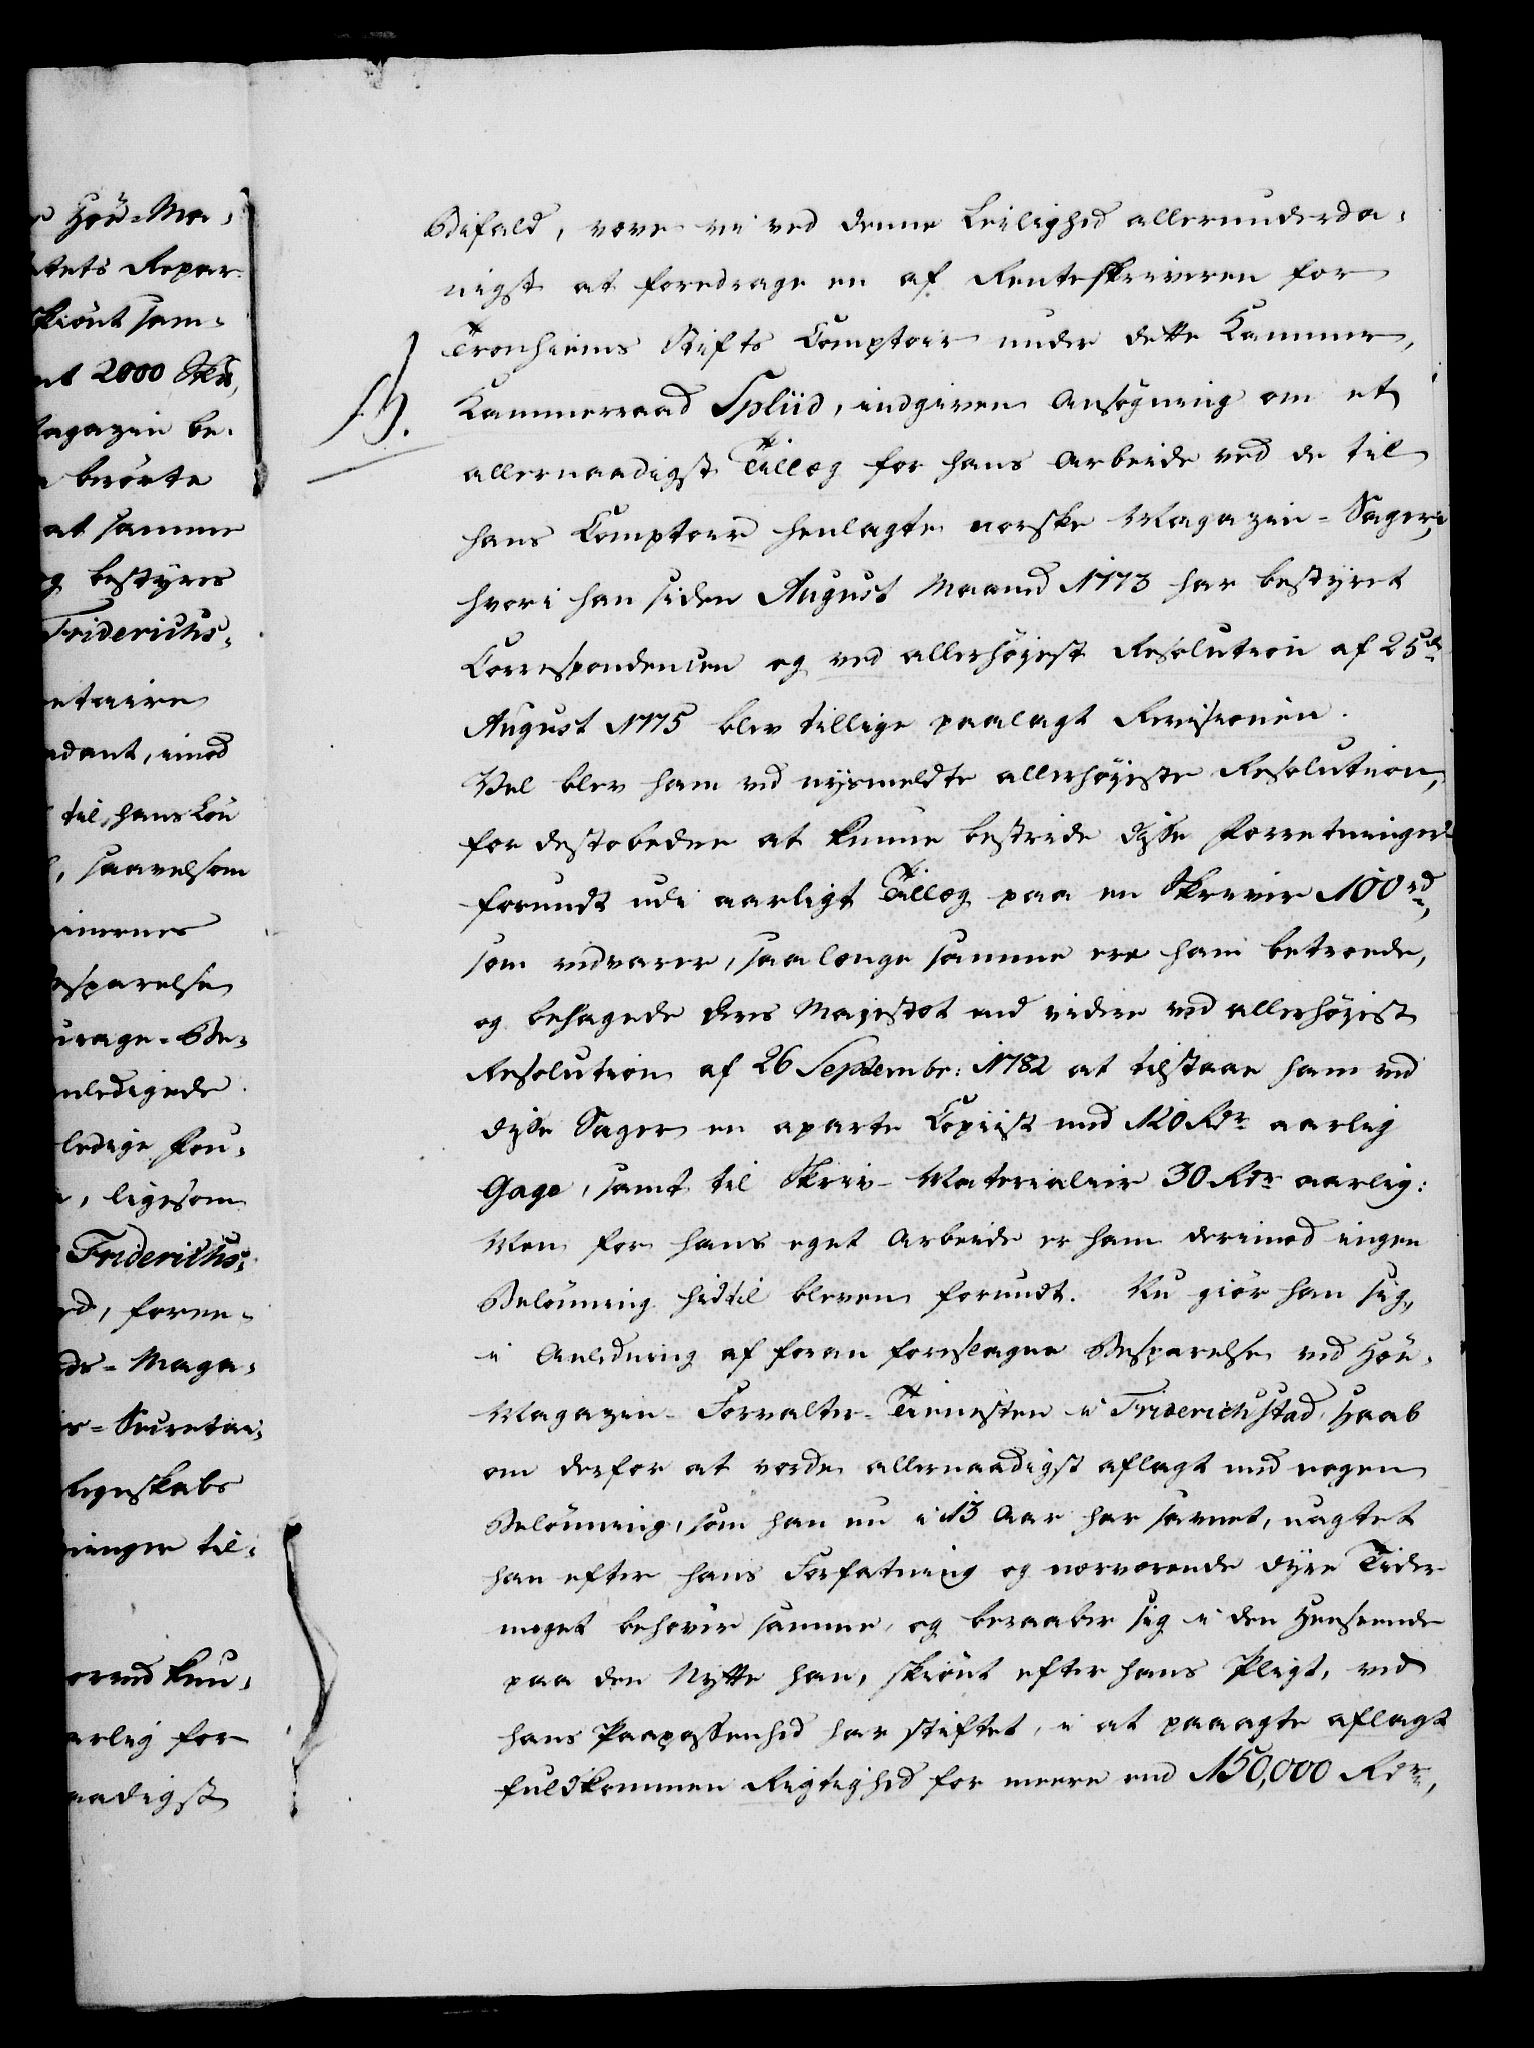 Høe-Ma-
tets Repar-
skiønt sam-
2000 Rdr,
Magazin be-
berørte
at samme
og bestyres
Friderichs-
etairen
dant, imod
til hans Løn
, saavelsom
Besparelse
urage-Be-
nledigede
ledige Fou-
, ligesom
Friderichs-
ed, foren-
de-Maga-
-Secretai-
Regnskabs
ninger til-
orved kun-
arlig for
naadigst
Bifald, vove vi ved denne Leilighed allerunderda-
nigst at foredrage en af Renteskriveren for
Tronhiems Stifts Comptoir under dette Kammer,
Kammerraad Spliid, indgiven Ansøgning om et
allernaadigst Tillæg for hans Arbeide ved de til
hans Comptoir henlagte norske Magazin-Sager,
hvori han siden August Maaned 1773 har bestyret
Correspondencen og ved allerhøjest Resolution af 25de
August 1775 blev tillige paalagt Revisionen.
Vel blev ham ved nysmeldte allerhøjeste Resolution,
for destobedre at kunne bestride disse Forretninger
forundt udi aarligt Tillæg paa en Skriver 100 rd,
som vedvarer, saalænge samme ere ham betroede,
og behagede Deres Majestæt end videre ved allerhøjest
Resolution af 26 Septembr: 1782 at tilstaae ham ved
disse Sager en aparte Copiist med 120 Rdr aarlig
Gage, samt til Skriv-Materialier 30 Rdr aarlig:
Men for hans eget Arbeide er ham derimod ingen
Belønning hidtil bleven forundt. Nu giør han sig,
i Anledning af foran foreslagne Besparelse ved Høe-
Magazin-Forvalter-Tienesten i Friderichstad, Haab
om derfor at vorde allernaadigst aflagt med nogen
Belønning, som han nu i 13 Aar har savnet, uagtet
han efter hans Forfatning og nærværende dyre Tider
meget behøver samme, og beraaber sig i den Henseende
paa den Nytte han, skiønt efter hans Pligt, ved
hans Paapassenhed har stiftet, i at paaagte aflagt
fuldkommen Rigtighed for meere end 150,000 Rdr,